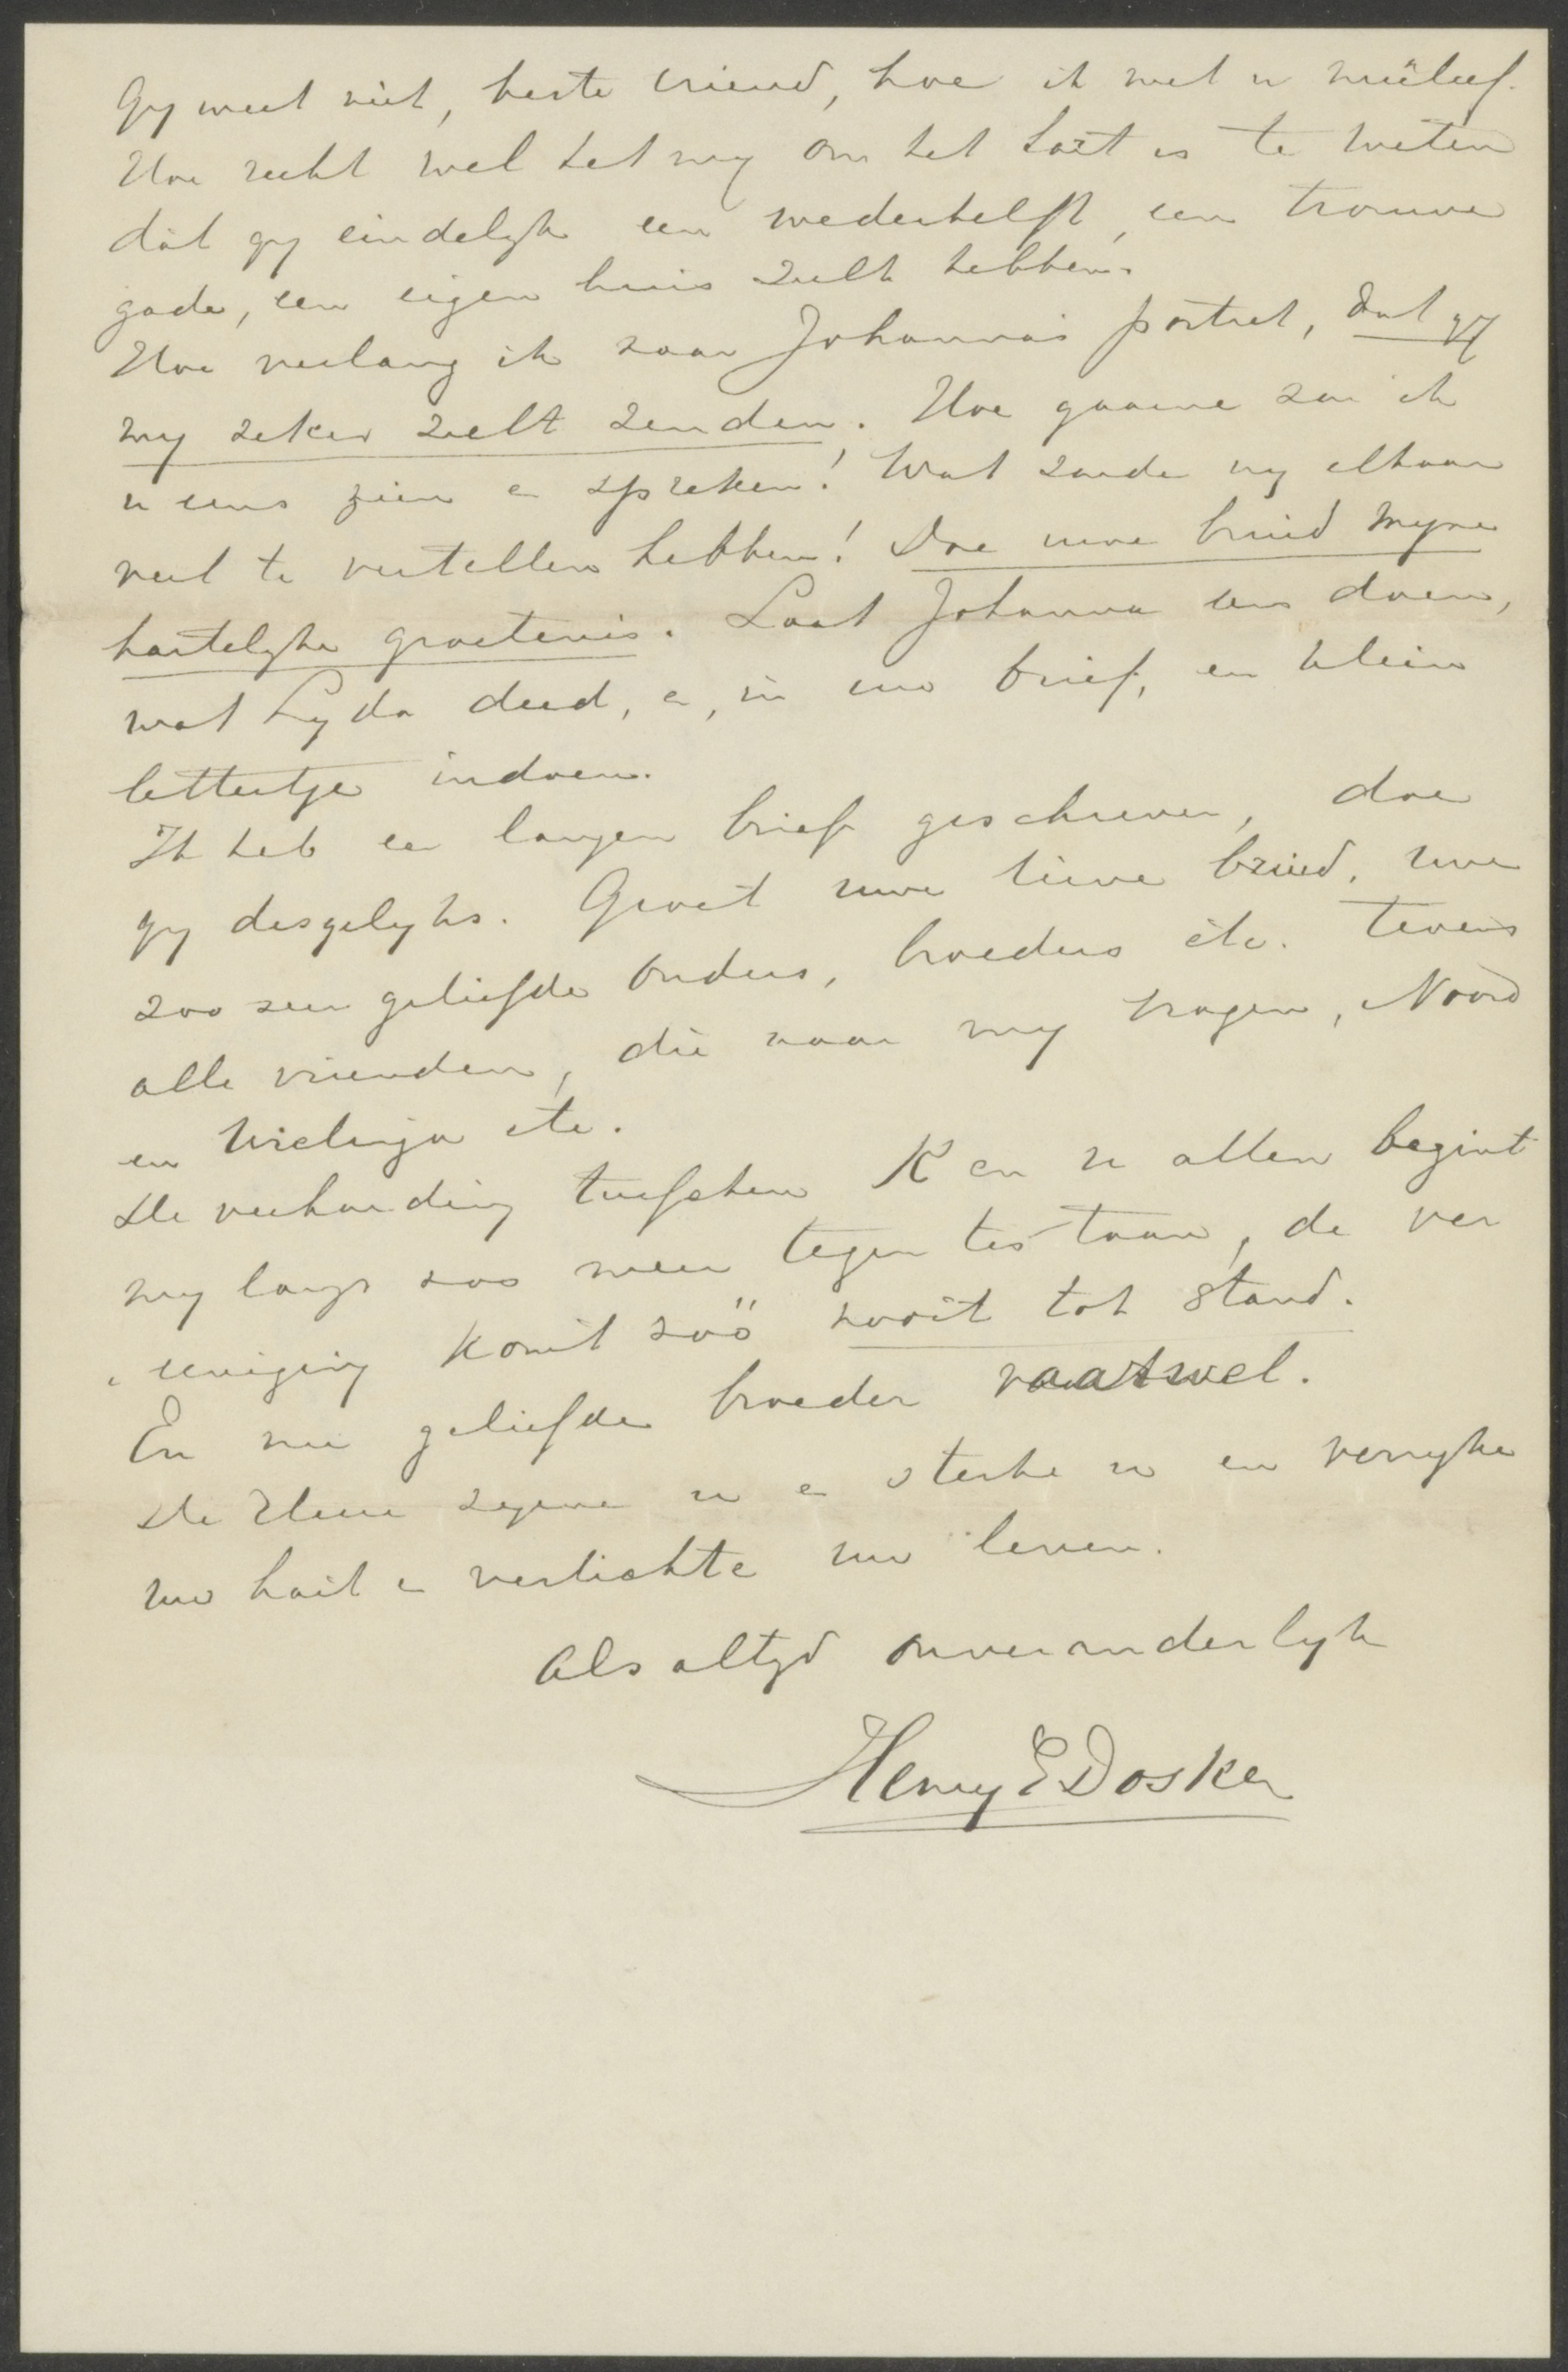 Gy weet niet, beste vriend, hoe ik met u meêleef.
Hoe recht wel het my om het hart is te weten
dat gy eindelyk een wederhelft, een trouwe
gade, een eigen huis zult hebben.
Hoe verlang ik naar Johanna's portret, dat gy
my zeker zult zenden. Hoe gaarne zou ik
u eens zien en spreken! Wat zouden wy elkaar
veel te vertellen hebben! Doe uwe bruid myne
hartelyke groetenis. Laat Johanna eens doen,
wat Lyda deed, en, in uw brief, een klein
lettertje indoen.
Ik heb een langen brief geschreven, doe
gy desgelyks. Groet uwe lieve bruid, uwe
zoo zeer geliefde ouders, broeders etc. Tevens
alle vrienden, die naar my vragen, Noord
en Wielenga etc.
De verhouding tusschen K en u allen begint
my langs zoo meer tegen te staan, de ver
eeniging komt zóó nooit tot stand.
En nu geliefde broeder vaarwel.
De Heere zegene u en sterke u en verryke
uw hart en verlichte uw leven.
Als altyd onveranderlyk
Henry E Dosker